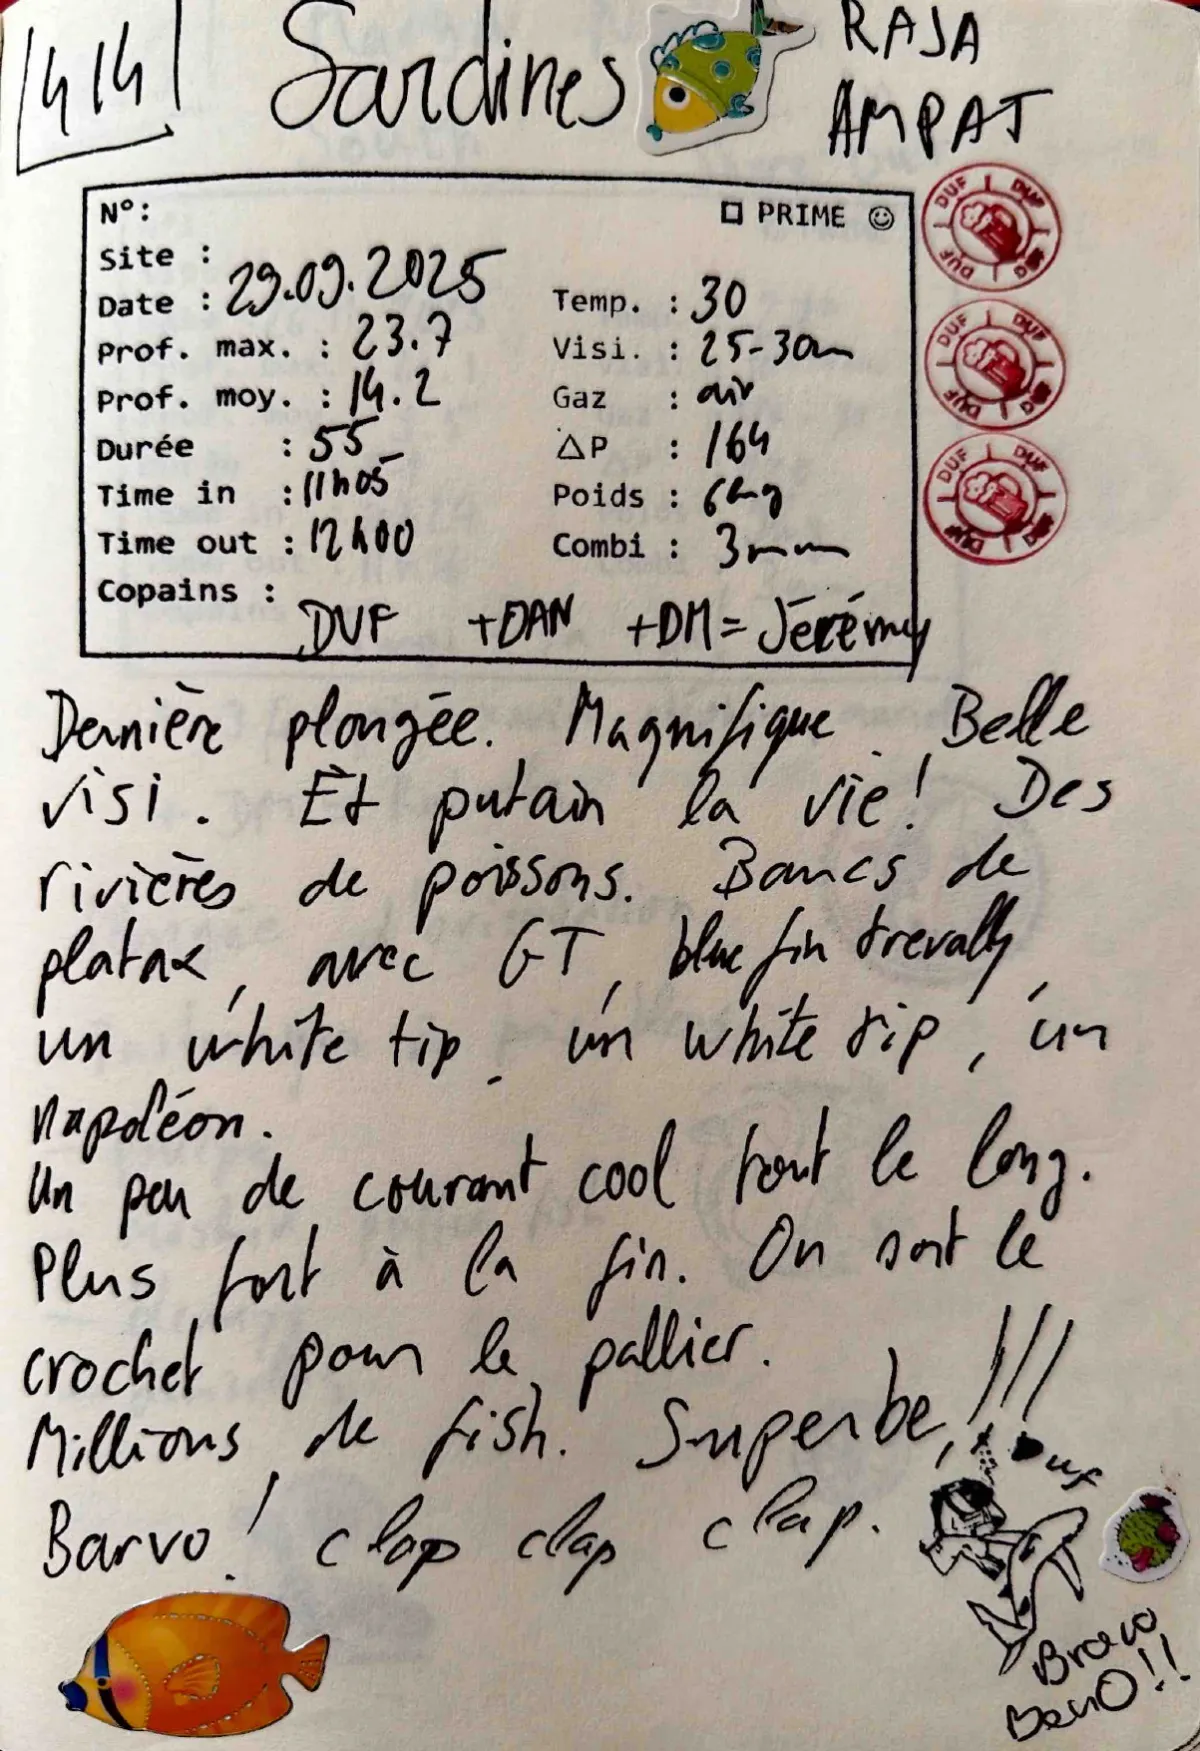 414 Sardines RAJA
AMPAT
N°: □ PRIME ☺
Site :
Date : 29.09.2025 Temp. : 30
Prof. max. : 23.7 Visi. : 25-30m
Prof. moy. : 14.2 Gaz : air
Durée : 55 ΔP : 164
Time in : 11h05 Poids : 6kg
Time out : 12h00 Combi : 3mm
Copains : DUF +DAN +DM= Jérémy
DUF DUF DUF DUF
DUF DUF DUF
DUF DUF DUF
Dernière plongée. Magnifique. Belle
visi. Et putain la vie! Des
rivières de poissons. Bancs de
platax, avec GT, blue fin trevally,
un white tip, un white tip, un
napoléon.
Un peu de courant cool tout le long.
Plus fort à la fin. On sort le
crochet pour le pallier.
Millions de fish. Superbe, !!!
Duf
Barvo! clap clap clap.
Bravo
BenO!!